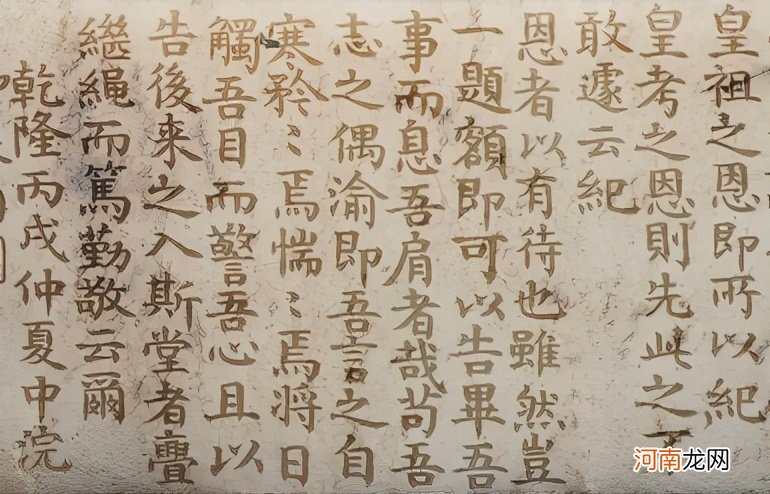 皇祖之恩即所以紀
皇考之恩則先此之不
敢遽云紀
恩者以有待也雖然豈
一題額即可以告畢吾
事而息吾肩者哉苟吾
志之偶渝即吾言之自
寒矜〻焉惴〻焉將日
觸吾目而警吾心且以
告後来之入斯堂者亹
繼繩而篤勤敬云爾
乾隆丙戌仲夏中浣
河南龙网